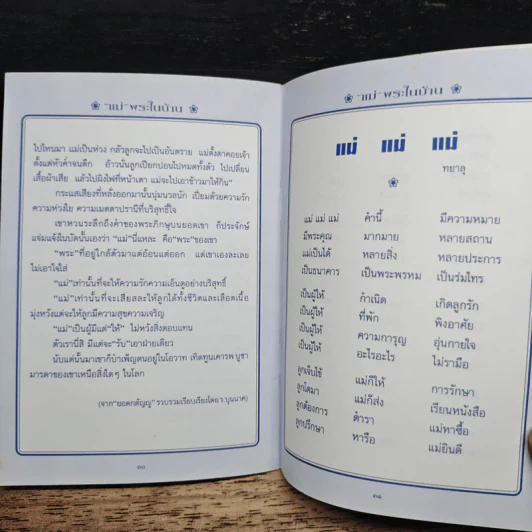 "แม่" พระในบ้าน
ไปไหนมา แม่เป็นห่วง กลัวลูกจะไปเป็นอันตราย แม่ตั้งตาคอยเจ้า
ตั้งแต่หัวค่ำจนดึก อ้าวนั่นลูกเปียกปอนไปหมดทั้งตัว ไปเปลี่ยน
เสื้อผ้าเสีย แล้วไปผิงไฟที่หน้าเตา แม่จะไปเอาข้าวมาให้กิน"
กระแสเสียงที่หลั่งออกมานั้นนุ่มนวลนัก เปี่ยมด้วยความรัก
ความห่วงใย ความเมตตาปรานีที่บริสุทธิ์ใจ
เขาหวนระลึกถึงคำของพระภิกษุบนยอดเขา ก็ประจักษ์
แจ่มแจ้งในบัดนั้นเองว่า "แม่"นี่แหละ คือ"พระ"ของเขา
"พระ"ที่อยู่ใกล้ตัวมาแต่อ้อนแต่ออก แต่เขาเองละเลย
ไม่เอาใจใส่
"แม่"เท่านั้นที่จะให้ความรักความเอ็นดูอย่างบริสุทธิ์
"แม่"เท่านั้นที่จะเสียสละให้ลูกได้ทั้งชีวิตและเลือดเนื้อ
มุ่งหวังแต่จะให้ลูกมีความสุขความเจริญ
"แม่"เป็นผู้มีแต่"ให้" ไม่หวังสิ่งตอบแทน
ตัวเรานี่สิ มีแต่จะ"รับ"เอาฝ่ายเดียว
นับแต่นั้นมาเขาก็บำเพ็ญตนอยู่ในโอวาท เทิดทูนเคารพ บูชา
มารดาของเขาเหนือสิ่งใดๆ ในโลก
(จาก"ยอดกตัญญู" รวบรวมเรียบเรียงโดย ว.บุนนาค)
๓๐
"แม่" พระในบ้าน
แม่ แม่ แม่
ทยาลุ
แม่ แม่ แม่ คำนี้ มีความหมาย
มีพระคุณ มากมาย หลายสถาน
แม่เป็นได้ หลายสิ่ง หลายประการ
เป็นธนาคาร เป็นพระพรหม เป็นร่มไทร
เป็นผู้ให้ กำเนิด เกิดลูกรัก
เป็นผู้ให้ ที่พัก พิงอาศัย
เป็นผู้ให้ ความการุญ อุ่นกายใจ
เป็นผู้ให้ อะไรอะไร ไม่รามือ
ลูกเจ็บไข้ แม่ก็ให้ การรักษา
ลูกโตมา แม่ก็ส่ง เรียนหนังสือ
ลูกต้องการ ตำรา แม่หาซื้อ
ลูกปรึกษา หารือ แม่ยินดี
๓๑